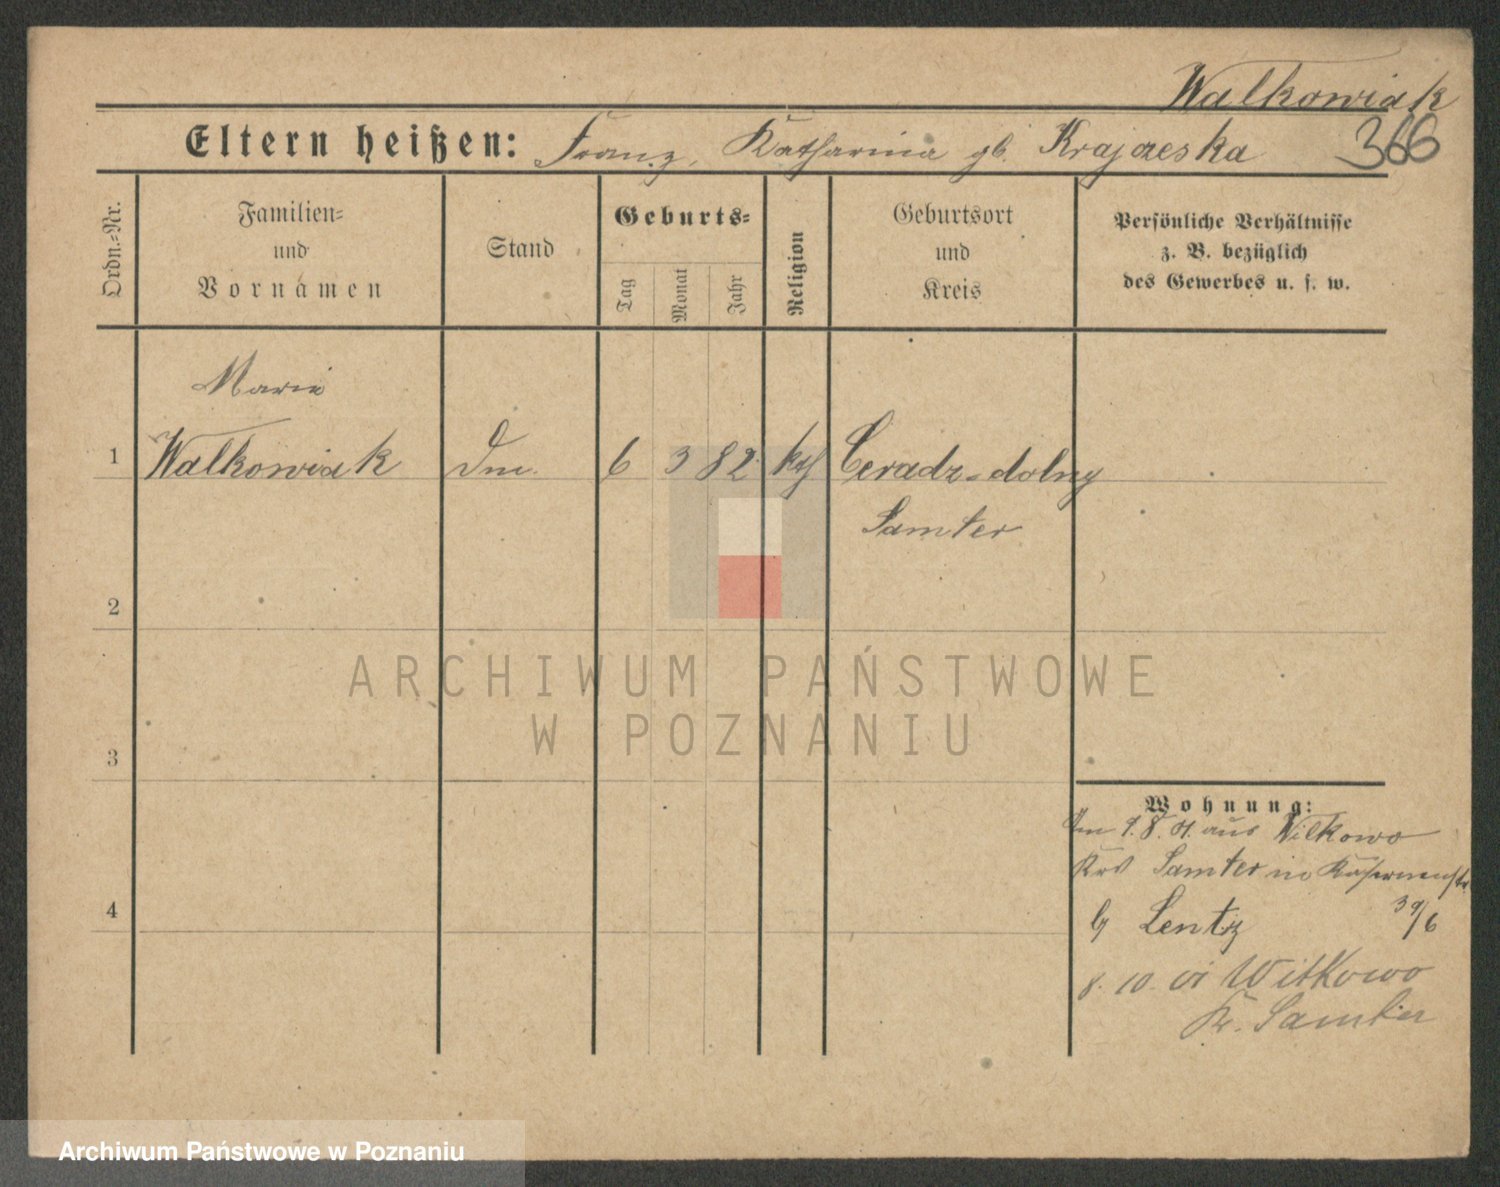 Walkowiak
Eltern heißen: Franz, Katharina gb. Krajzeska 366
Ordn.=Nr.
Familien=
und
Vornamen
Stand
Geburts=
Tag
Monat
Jahr
Religion
Geburtsort
und
Kreis
Persönliche Verhältnisse
z. B. bezüglich
des Gewerbes u. s. w.
Marie
1 Walkowiak 6 3 82 kth Ceradz-dolny
Samter
2
3
4
Wohnung:
Am 9. 8. 01. aus Wilkowo
Krs Samter in Kasernenstr
b Lentz 39/6
8. 10. 01 Wilkowo
Kr. Samter
ARCHIWUM PAŃSTWOWE
W POZNANIU
Archiwum Państwowe w Poznaniu